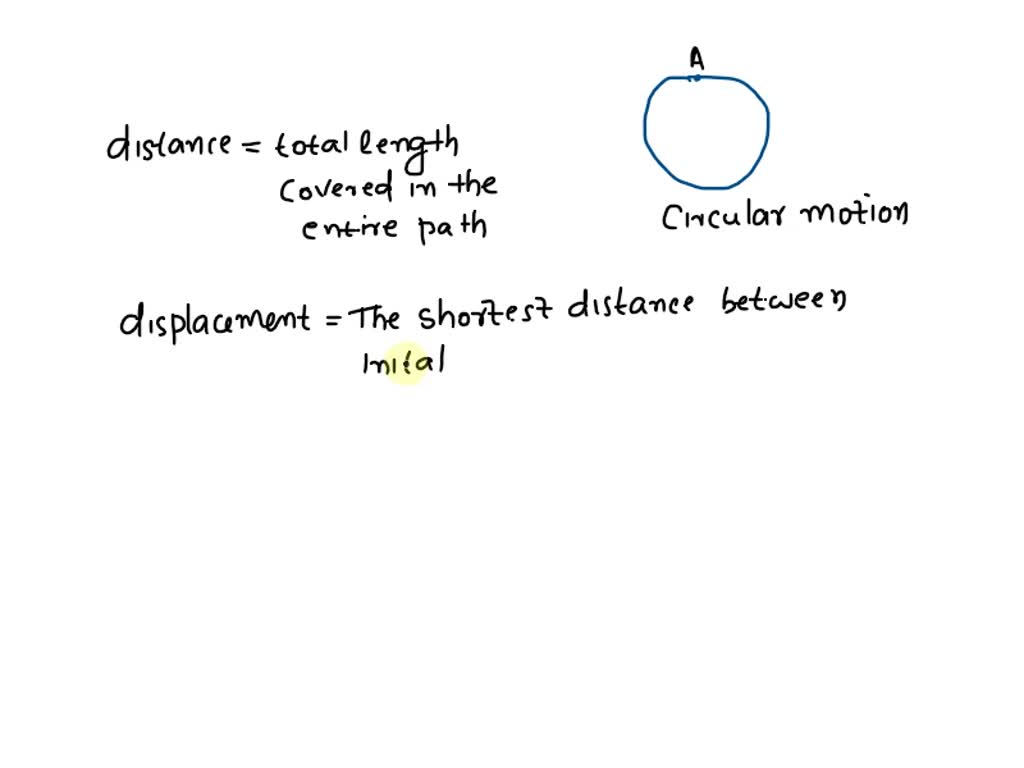 A
distance = total length
covered in the
entire path
Circular motion
displacement = The shortest distance between
Inital